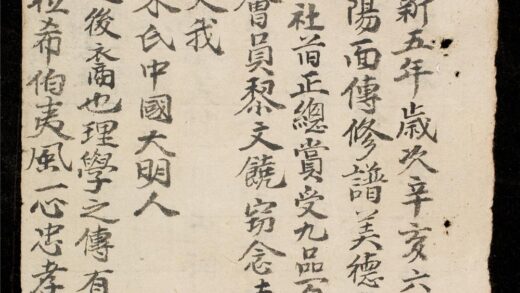 新五年歲次辛亥六
陽面傳修譜美德
社首正總賞受九品百
會員黎文饒窃念夫
我
氏中國大明人
後裔也理學之傳有
希伯夷風一心忠孝